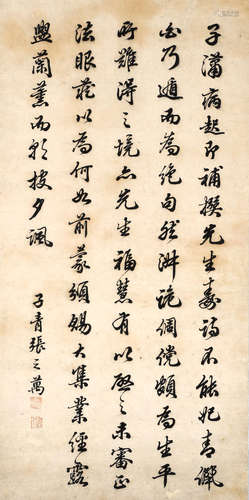 子瀟病起即補撰先生壽詩不能妃青儷
白乃遁而為絕句然淋詭倜儻頗為生平
所難得之境亦先生福慧有以啟之未審正
法眼藏以為何如前蒙頒賜大集業經露
盥蘭薰而朝披夕諷
子青張之萬